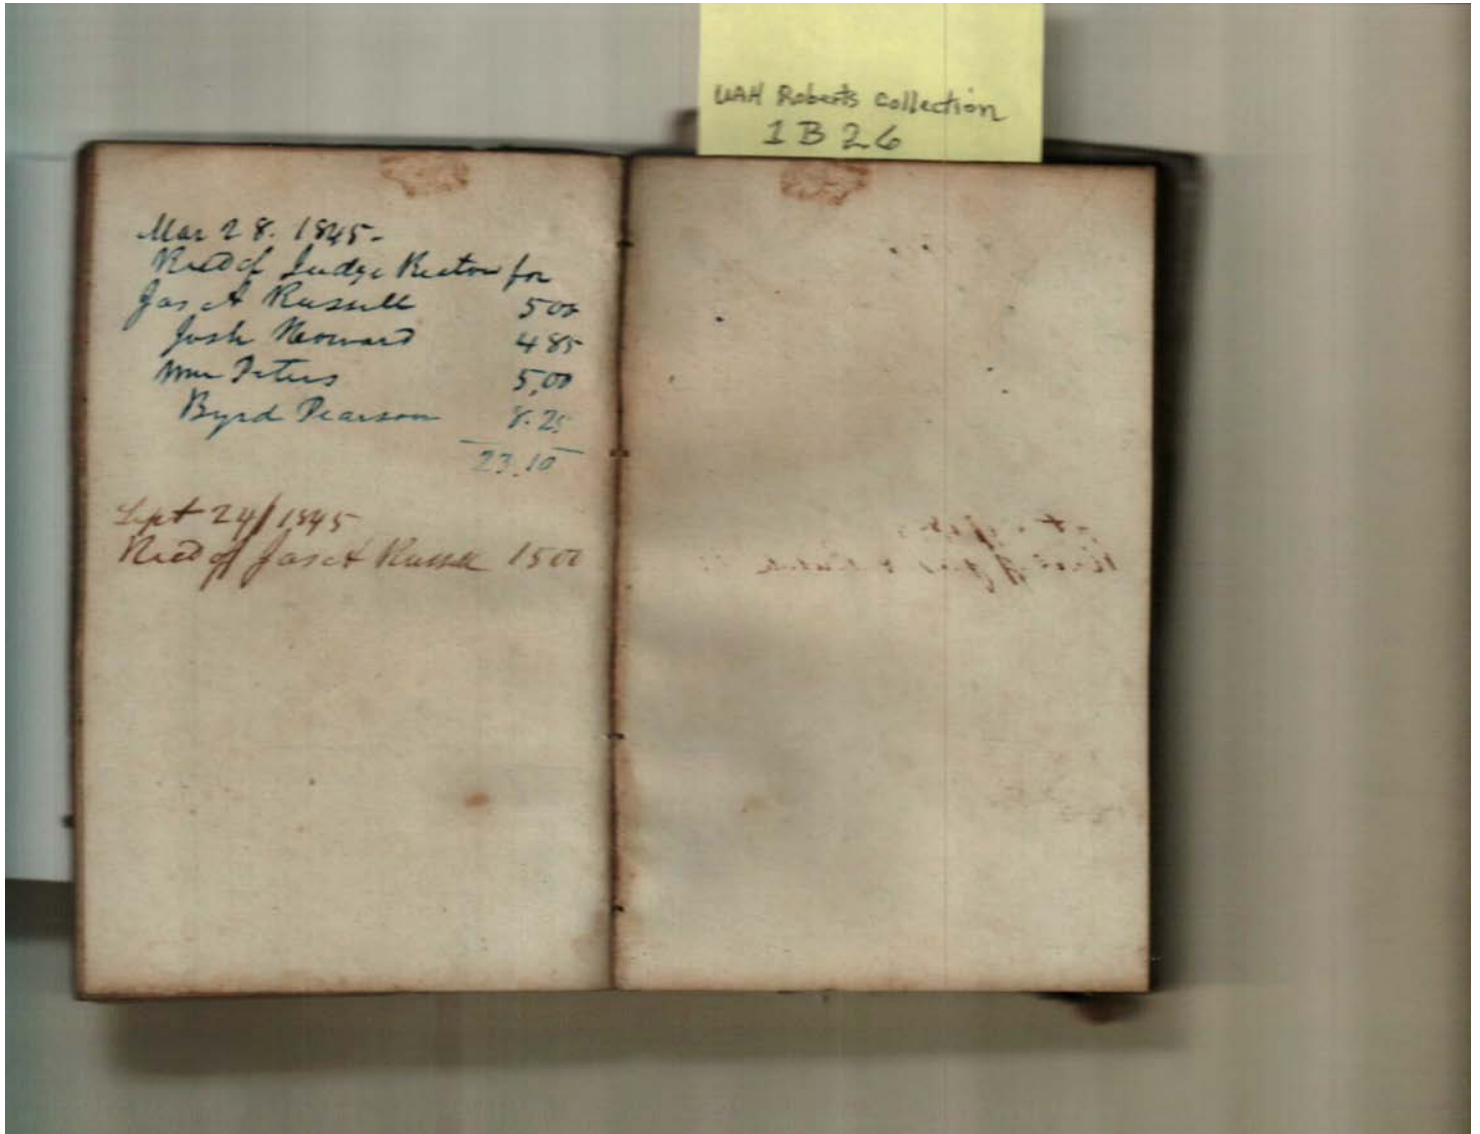 UAH Roberts Collection
1 B 26
Mar 28. 1845-
Recd of Judge Rector for
Jas A Russell 500
Josh Howard 485
Wm Peters 5,00
Byrd Pearson 8.25
23.10
Sept 24/1845
Recd of Jas A Russell 1500